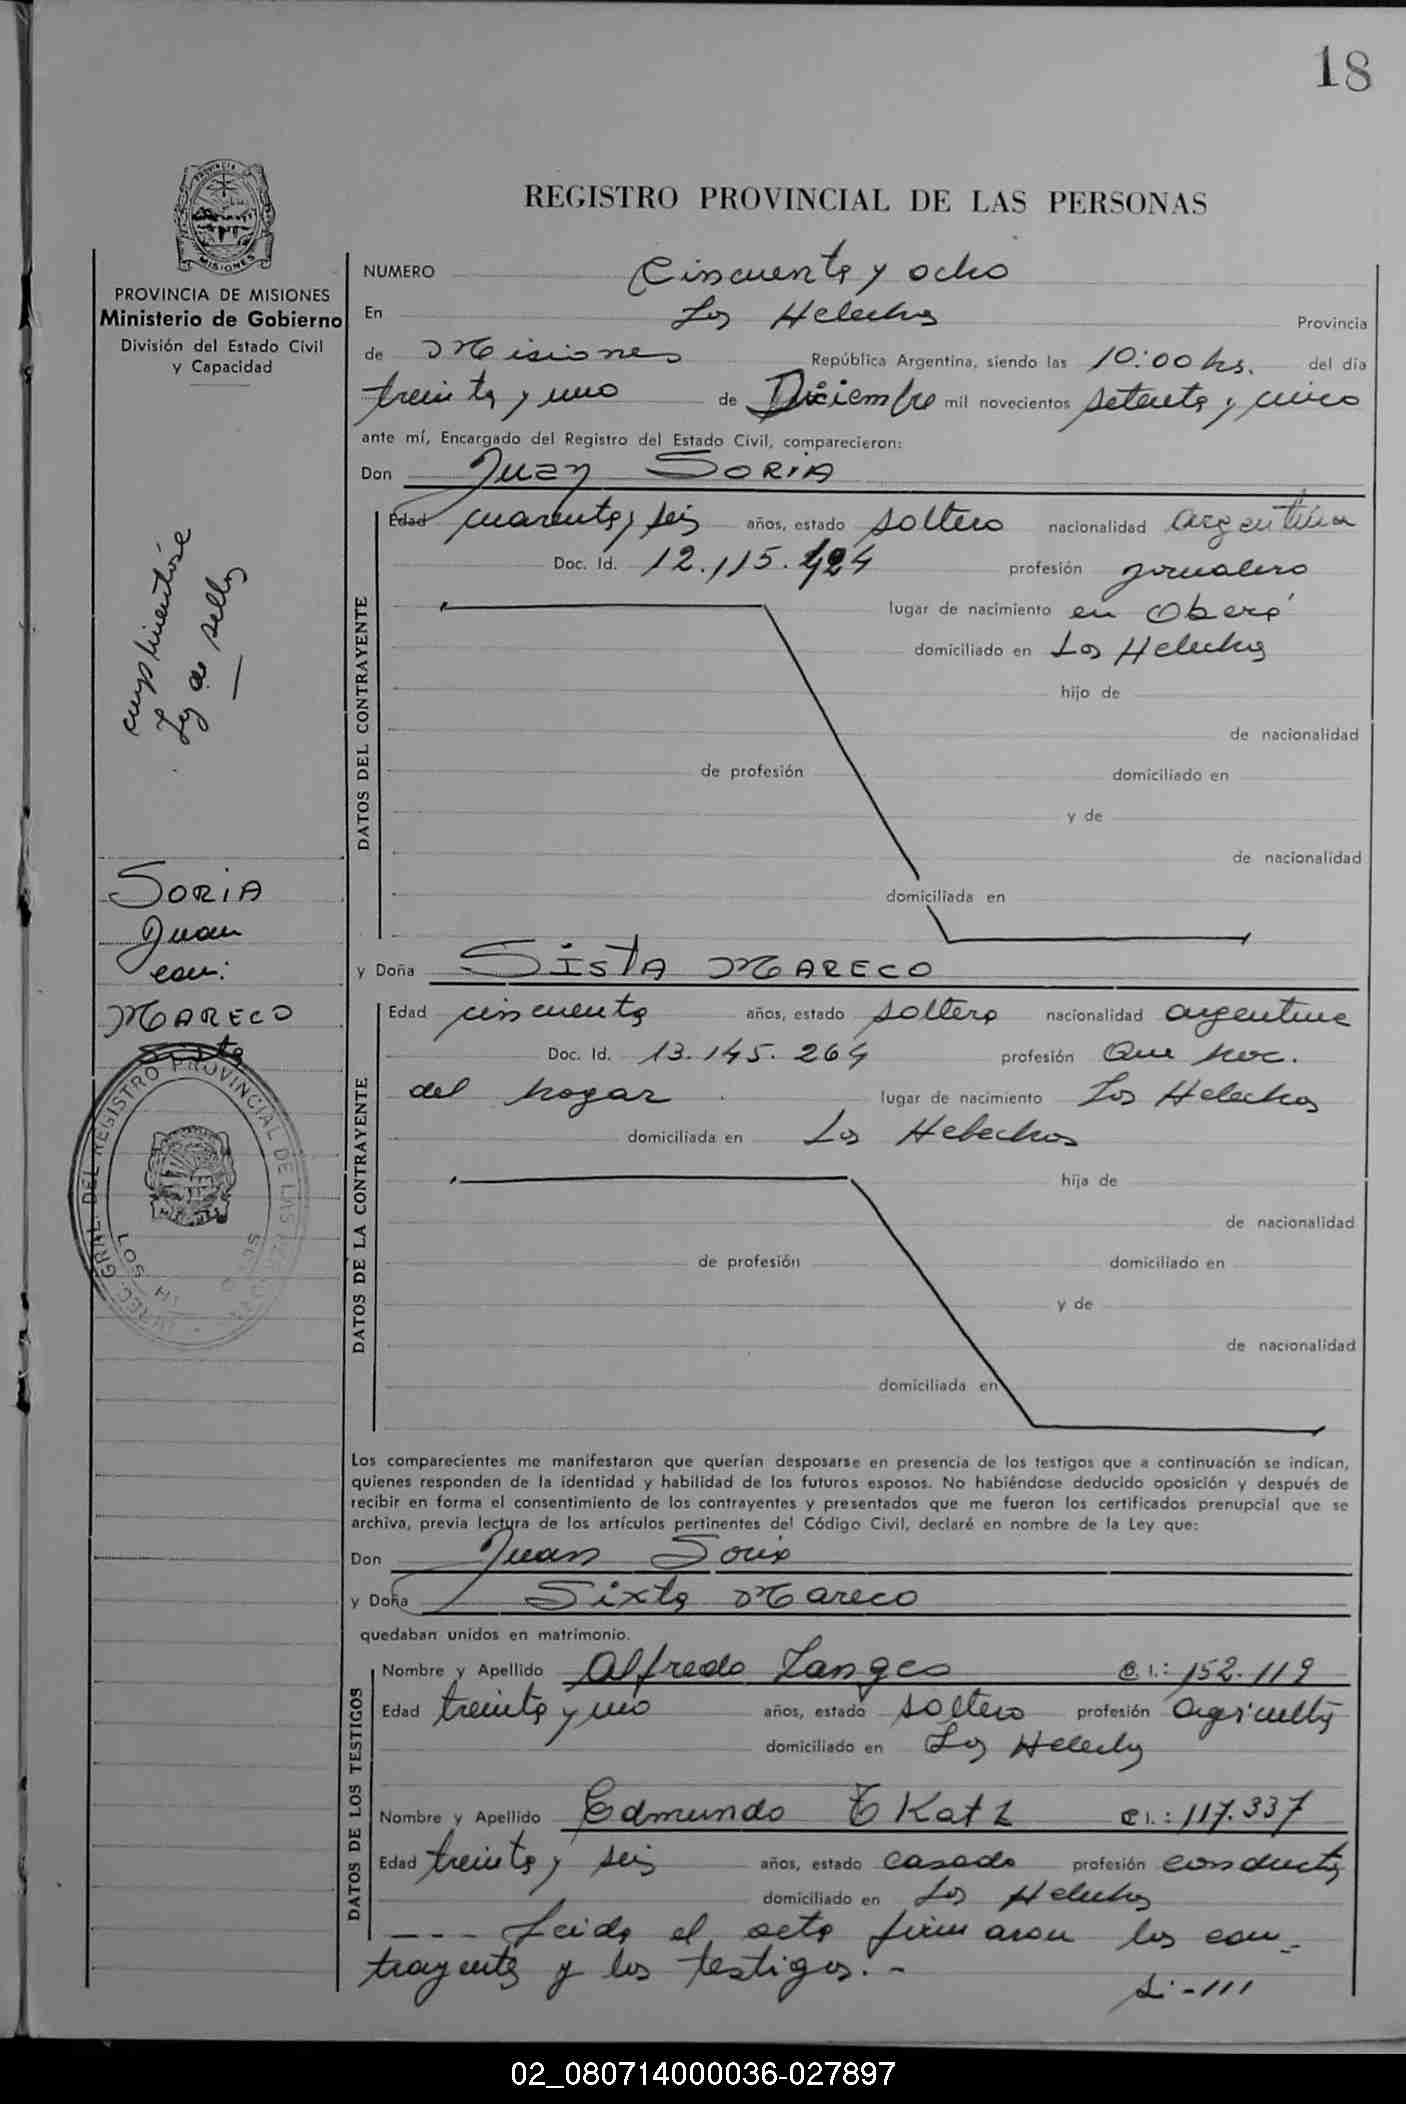 18
PROVINCIA DE MISIONES
Ministerio de Gobierno
División del Estado Civil
y Capacidad
REGISTRO PROVINCIAL DE LAS PERSONAS
NUMERO Cincuenta y ocho
En Los Helechos Provincia
de Misiones República Argentina, siendo las 10:00 hs. del día
treinta y uno de Diciembre mil novecientos setenta y cinco
ante mí, Encargado del Registro del Estado Civil, comparecieron:
Don Juan SORIA
DATOS DEL CONTRAYENTE
Edad cuarenta y seis años, estado soltero nacionalidad argentina
Doc. Id. 12.115.424 profesión jornalero
lugar de nacimiento en Oberá
domiciliado en Los Helechos
hijo de
de nacionalidad
de profesión domiciliado en
y de
de nacionalidad
domiciliada en
cumplimentóse
Ley de sellos
SORIA
Juan
con:
MARECO
Sixta
GRAL. DEL REGISTRO PROVINCIAL DE LAS
LOS
y Doña SISTA MARECO
DATOS DE LA CONTRAYENTE
Edad cincuenta años, estado soltera nacionalidad argentina
Doc. Id. 13.145.264 profesión Que hac.
del hogar lugar de nacimiento Los Helechos
domiciliada en Los Helechos
hija de
de nacionalidad
de profesión domiciliado en
y de
de nacionalidad
domiciliada en
Los comparecientes me manifestaron que querían desposarse en presencia de los testigos que a continuación se indican,
quienes responden de la identidad y habilidad de los futuros esposos. No habiéndose deducido oposición y después de
recibir en forma el consentimiento de los contrayentes y presentados que me fueron los certificados prenupcial que se
archiva, previa lectura de los artículos pertinentes del Código Civil, declaré en nombre de la Ley que:
Don Juan Soria
y Doña Sixta Mareco
quedaban unidos en matrimonio.
DATOS DE LOS TESTIGOS
Nombre y Apellido Alfredo Langes C.I.: 152.119
Edad treinta y uno años, estado soltero profesión agricultor
domiciliado en Los Helechos
Nombre y Apellido Edmundo TKatz C.I.: 117.337
Edad treinta y seis años, estado casado profesión conductor
domiciliado en Los Helechos
--- Leida el acta firmaron los con-
trayentes y los testigos.-
02_080714000036-027897